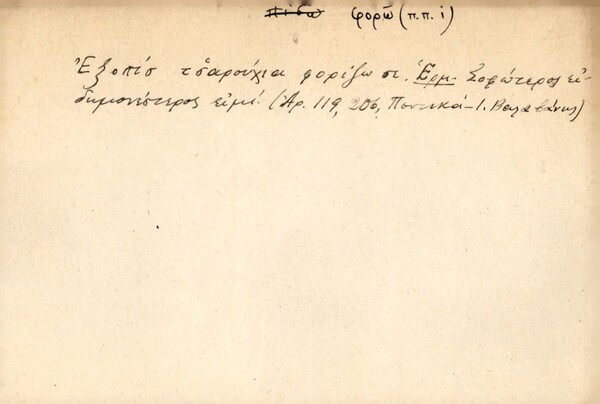 φορῶ (π.π. ι)
Ἐξοπίσ τσ̌αρούχια φορίζω σι. Ἑρμ. Σοφώτερος εὐ-
δαιμονέστερος εἰμί! (Ἀρ. 119, 206, Ποντικά - Ι. Βαλαβάνης)